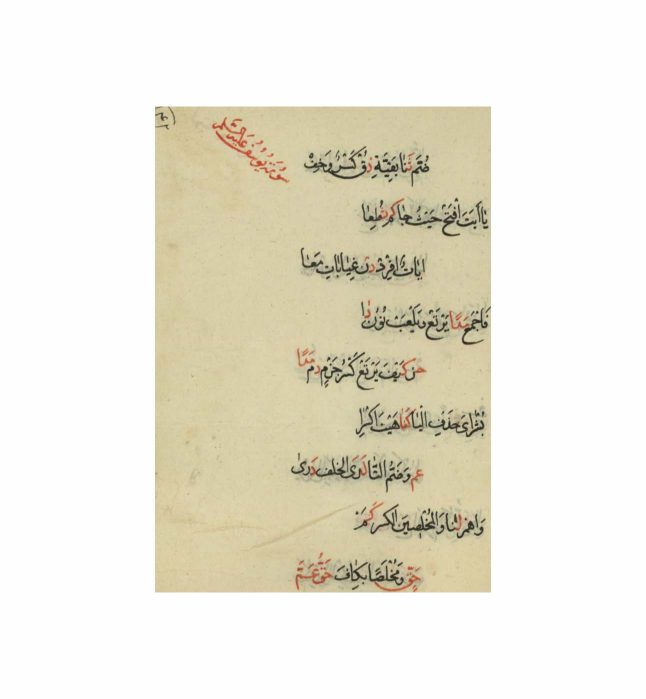 سورة يوسف عليه السلم
ضم ثَنا بقِيَةِ ذُق كَسْرٌ وَخَفْ
يَا أَبَتَ افْتَحْ حَيْثُ جَا كَمْ ثُطِعَا
ايَاتُ افْرِدْ دِنْ غيَابَاتِ مَعَا
فَاجْمَعْ مَدًا يَرْتَعْ وَيَلْعَبْ نُوْنُ دَا
حُز كَيْفَ يَرْتَعْ كَسْرُ جَزْمٍ دُمْ مَدًا
بُشْرَايَ حَذْفِ الْيَا كَفَا هَيْتَ اكْسِرَا
عم وَضَمُّ التَّا لَدَى الخلف دَرى
وَاهْمِز لَنَا وَالمُخْلِصِينَ الْكَسر كَمْ
حَقٌّ وَمُخْلَصًا بِكَافَ حَقُّ عَمْ